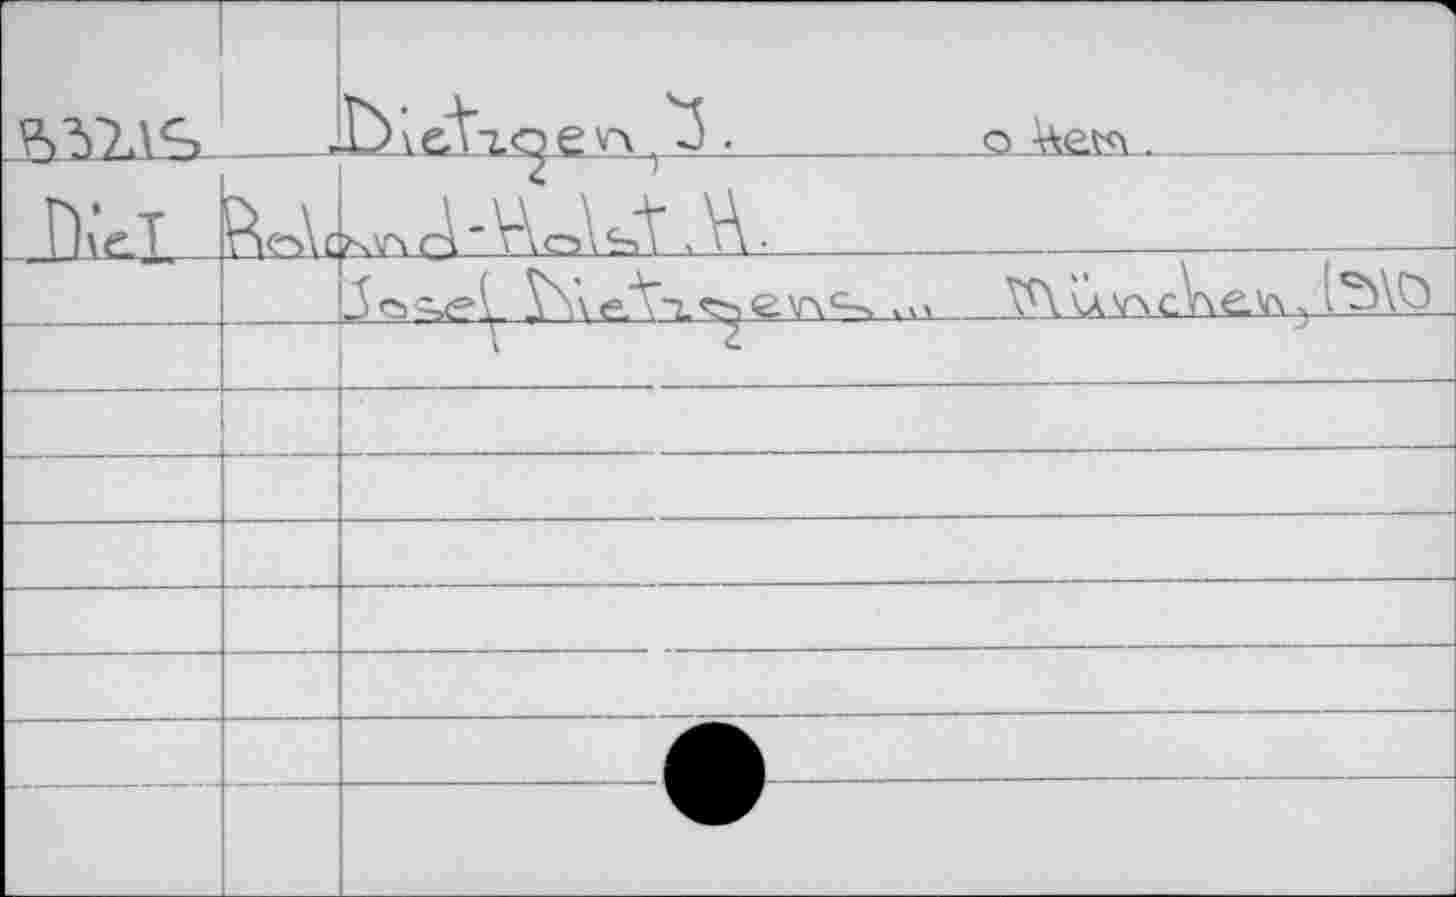 B3215 Dietzgen, J. o nem.
DieT Roland-Holst, H.
Josef Dietzgens ... München, 1910